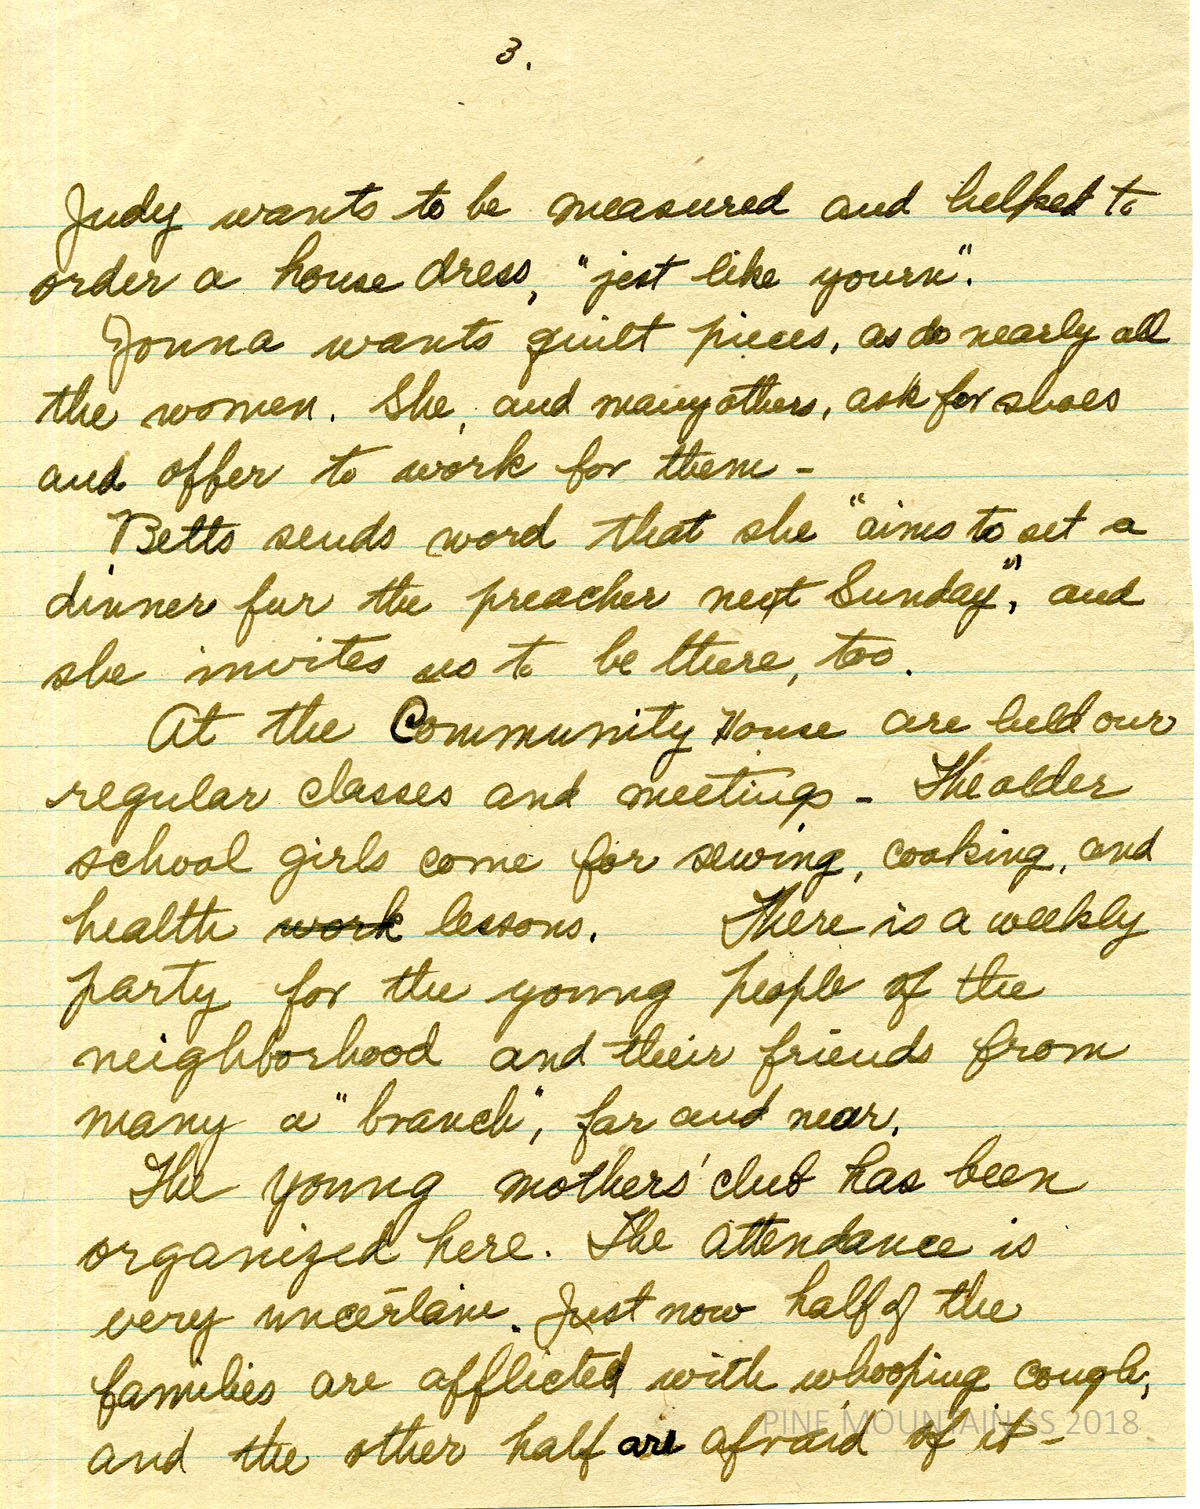 3.
Judy wants to be measured and helped to
order a house dress, "jest like yourn".
Jonna wants quilt pieces, as do nearly all
the women. She, and many others, ask for shoes
and offer to work for them -
Betts sends word that she "aims to set a
dinner fur the preacher next Sunday", and
she invites us to be there, too.
At the Community House are held our
regular classes and meetings - The older
school girls come for sewing, cooking, and
health work lessons. There is a weekly
party for the young people of the
neighborhood and their friends from
many a "branch", far and near.
The young mothers' club has been
organized here. The attendance is
very uncertain. Just now half of the
families are afflicted with whooping cough,
and the other half are afraid of it -
PINE MOUNTAIN SS 2018